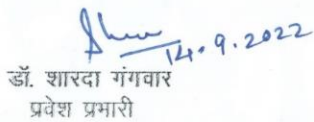 14.9.2022
डॉ. शारदा गंगवार
प्रवेश प्रभारी